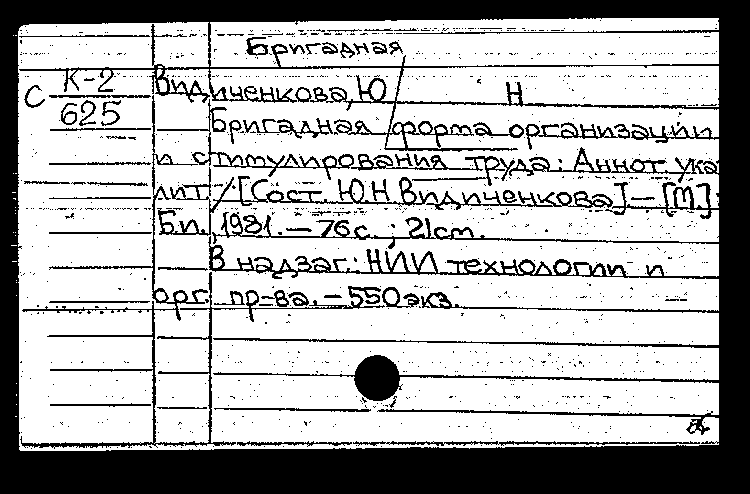 Бригадная
С К-2
625
Видиченкова, Ю Н
Бригадная форма организации
и стимулирования труда: Аннот. ука
лит. / [Сост. Ю.Н. Видиченкова] — [М]:
Б.и., 1981. — 76 с. ; 21 cm.
В надзаг.: НИИ технологии и
орг. пр-ва. — 550 экз.